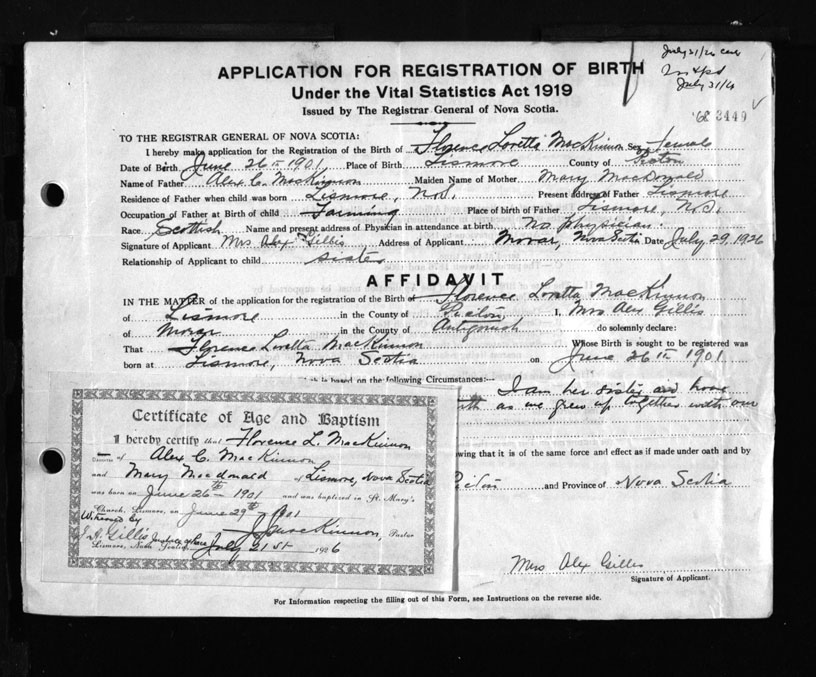 July 31/26
July 31/26
APPLICATION FOR REGISTRATION OF BIRTH
Under the Vital Statistics Act 1919
Issued by The Registrar General of Nova Scotia.
3449
TO THE REGISTRAR GENERAL OF NOVA SCOTIA:
I hereby make application for the Registration of the Birth of Florence Loretta MacKinnon Sex female
Date of Birth June 26th 1901 Place of Birth Lismore County of Pictou
Name of Father Alex C. MacKinnon Maiden Name of Mother Mary MacDonald
Residence of Father when child was born Lismore, N.S. Present address of Father Lismore
Occupation of Father at Birth of child Farming Place of birth of Father Lismore, N.S.
Race Scottish Name and present address of Physician in attendance at birth No physician.
Signature of Applicant Mrs Alex Gillis Address of Applicant Morar, Nova Scotia Date July 29, 1926
Relationship of Applicant to child sister
AFFIDAVIT
IN THE MATTER of the application for the registration of the Birth of Florence Loretta MacKinnon
of Lismore in the County of Pictou I, Mrs Alex Gillis
of Morar in the County of Antigonish do solemnly declare:
That Florence Loretta MacKinnon Whose Birth is sought to be registered was
born at Lismore, Nova Scotia on June 26th 1901.
is based on the following Circumstances:—
I am her sister and have
as we grew up together with our
Certificate of Age and Baptism
I hereby certify that Florence L. MacKinnon
of Alex C. MacKinnon
and Mary Macdonald of Lismore, Nova Scotia
was born on June 26th 1901 and was baptized in St. Mary's
Church, Lismore, on June 29th 1901
Witnessed by
J. MacKinnon, Pastor
J. A. Gillis Justice of Peace
Lismore, Nova Scotia, July 21st 1926
owing that it is of the same force and effect as if made under oath and by
Pictou and Province of Nova Scotia
Mrs Alex Gillis
Signature of Applicant.
For Information respecting the filling out of this Form, see Instructions on the reverse side.